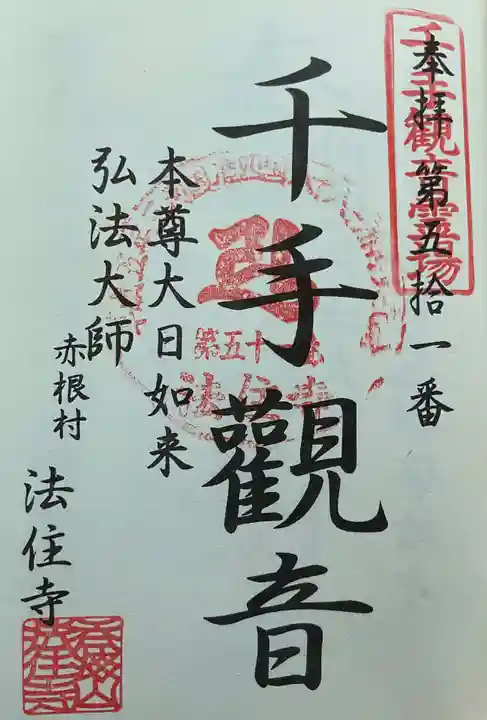 奉拝第五拾一番
千手觀音
本尊大日如来
弘法大師
赤根村
法住寺
千手觀音霊場
弘
第五十一番
法住寺